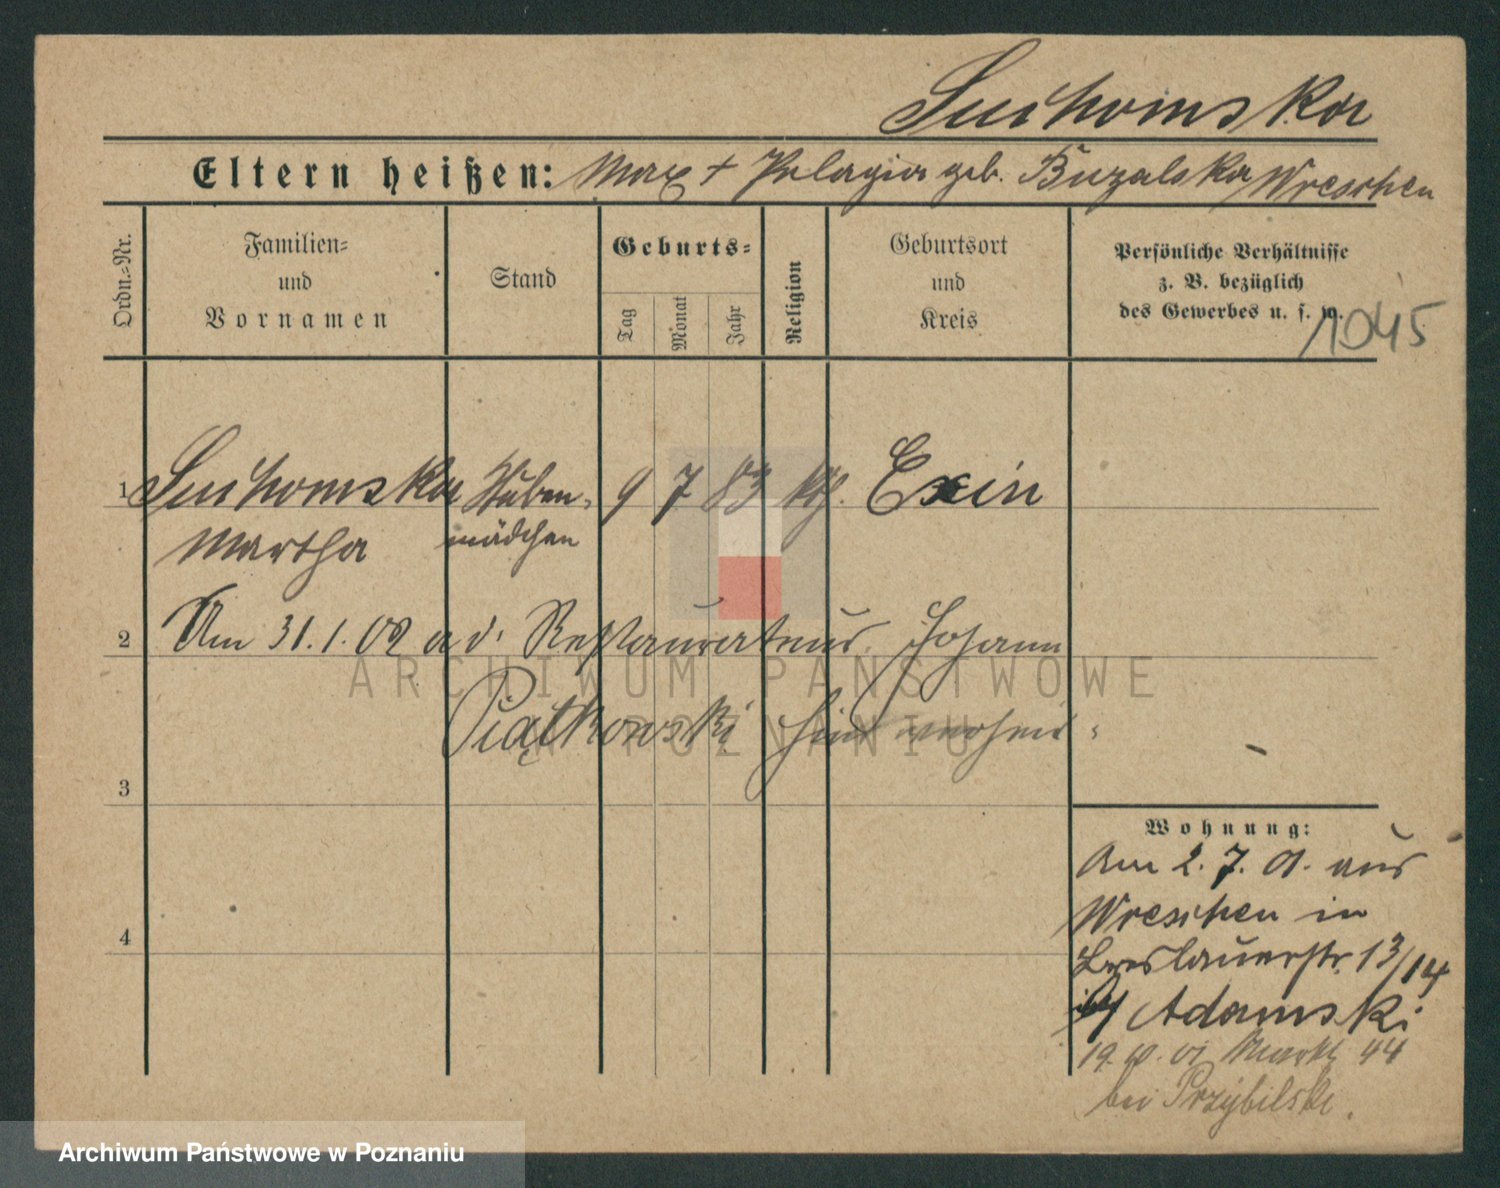 Suchomska
Eltern heißen: Max + Pelagia geb. Buzalska Wreschen
Ordn.=Nr.
Familien=
und
Vornamen
Stand
Geburts=
Tag
Monat
Jahr
Religion
Geburtsort
und
Kreis
Persönliche Verhältnisse
z. B. bezüglich
des Gewerbes u. s. w.
1045
1 Suchomska Stuben= 9 7 83 kth. Exin
Martha mädchen
2 Am 31.1.02 a d. Restaurateur Johann
Piątkowski hier verheir.
3
Wohnung:
Am 2.7.01. aus
Wreschen in
Breslauerstr. 13/14
Adamski
4
19.10.01 Markt 44
bei Przybilski.
ARCHIWUM PAŃSTWOWE
W POZNANIU
Archiwum Państwowe w Poznaniu